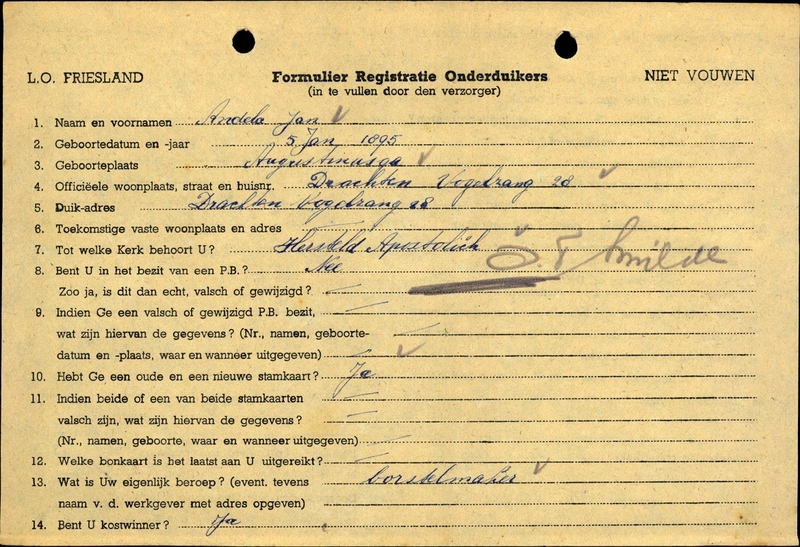 L.O. FRIESLAND Formulier Registratie Onderduikers NIET VOUWEN
(in te vullen door den verzorger)
1. Naam en voornamen Andela Jan
2. Geboortedatum en -jaar 5 Jan 1895
3. Geboorteplaats Augustinusga
4. Officiëele woonplaats, straat en huisnr. Drachten Vogelzang 28
5. Duik-adres Drachten Vogelzang 28
6. Toekomstige vaste woonplaats en adres
7. Tot welke Kerk behoort U? Hersteld Apostolisch
8. Bent U in het bezit van een P.B.? Nee
Zoo ja, is dit dan echt, valsch of gewijzigd?
9. Indien Ge een valsch of gewijzigd P.B. bezit,
wat zijn hiervan de gegevens? (Nr., namen, geboorte-
datum en -plaats, waar en wanneer uitgegeven)
10. Hebt Ge een oude en een nieuwe stamkaart? Ja
11. Indien beide of een van beide stamkaarten
valsch zijn, wat zijn hiervan de gegevens?
(Nr., namen, geboorte, waar en wanneer uitgegeven)
12. Welke bonkaart is het laatst aan U uitgereikt?
13. Wat is Uw eigenlijk beroep? (event. tevens borstelmaker
naam v. d. werkgever met adres opgeven)
14. Bent U kostwinner? Ja